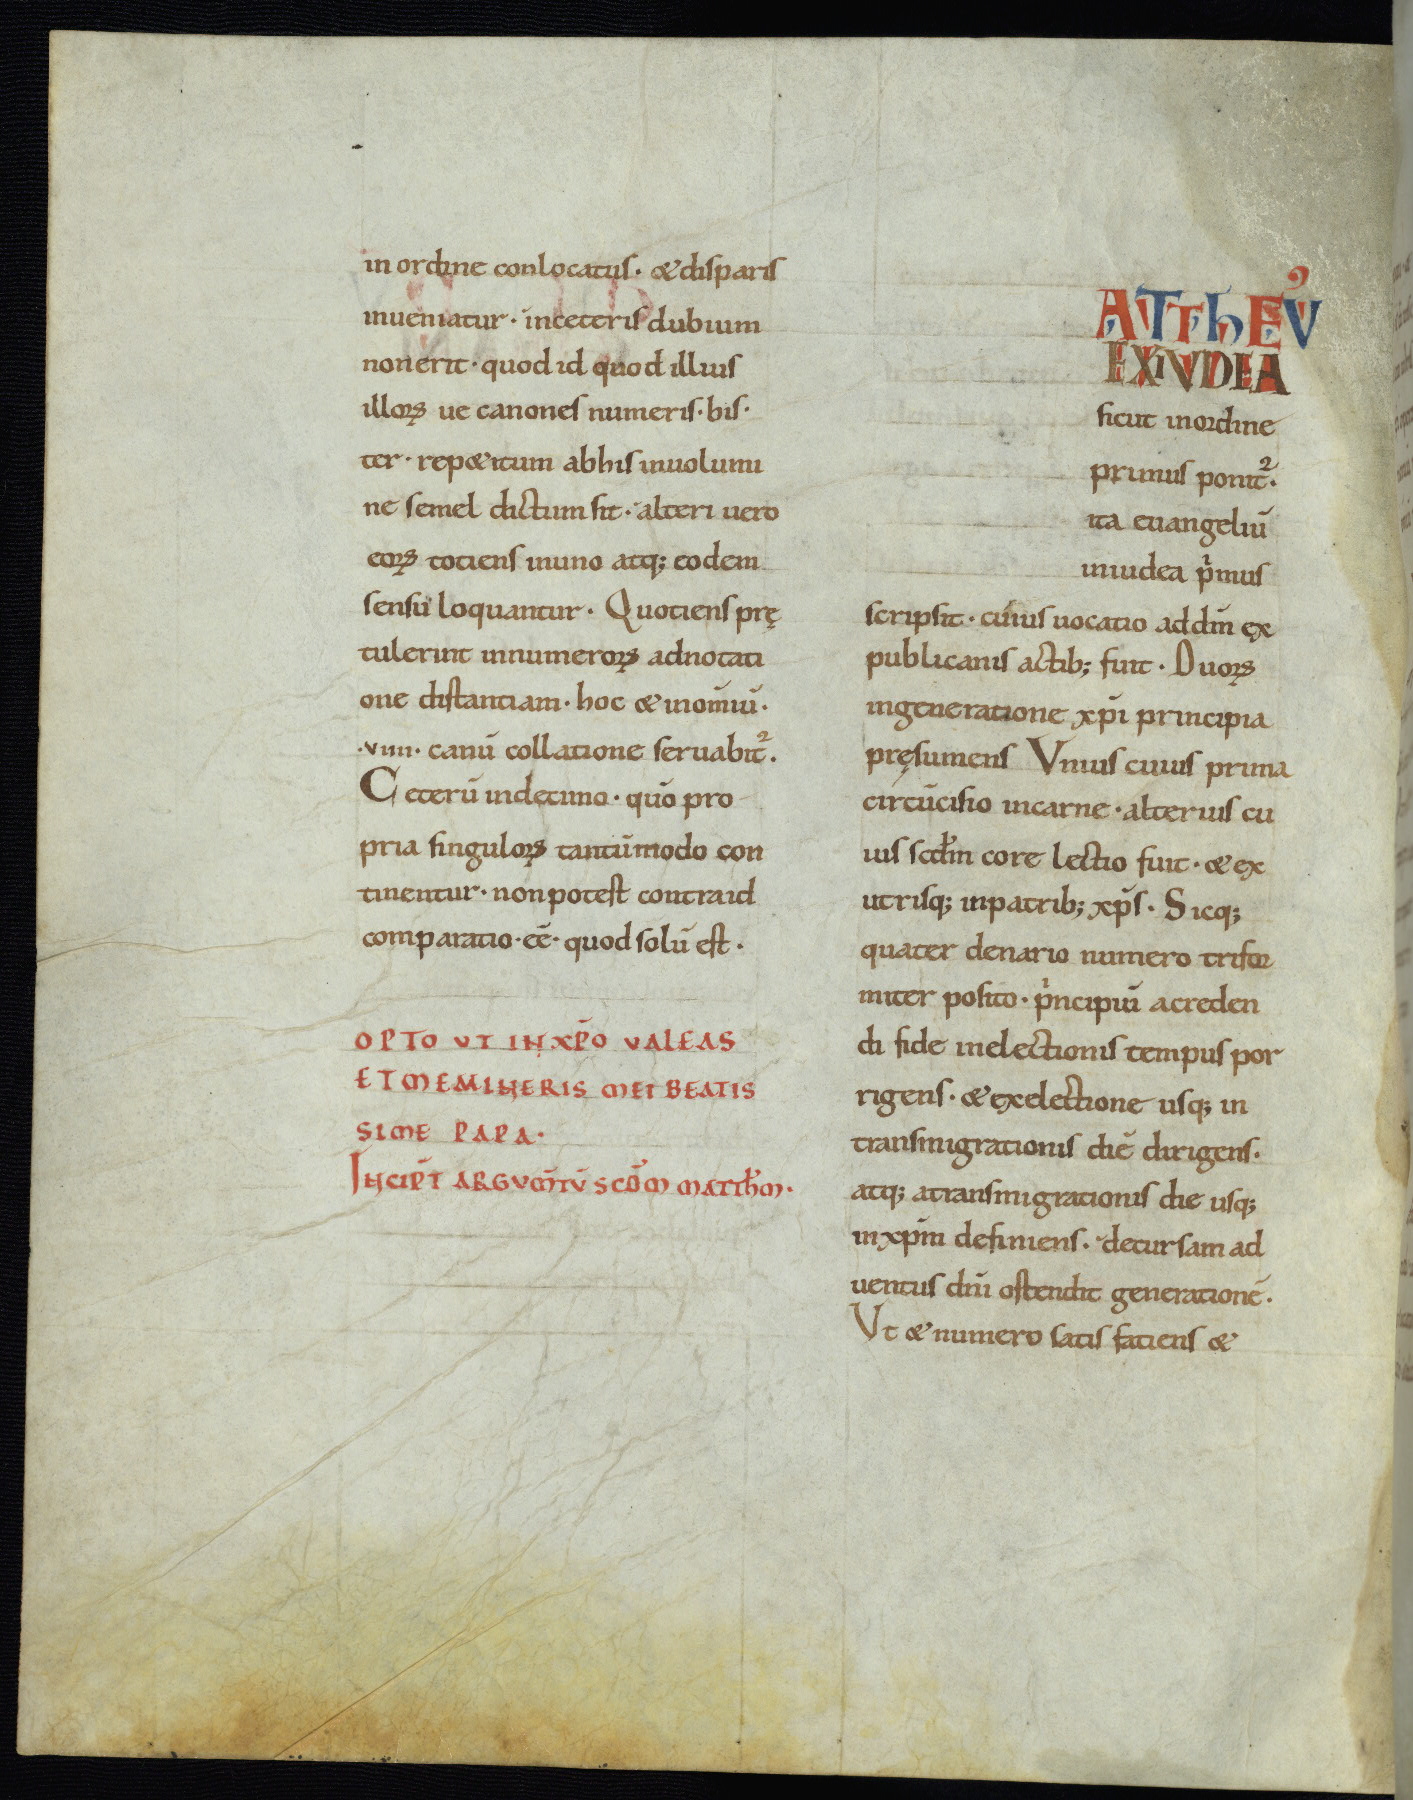 in ordine conlocatus· & disparis
inueniatur· inceteris dubium
non erit· quod id quod illius
illorꝝ ue canones numeris· bis·
ter· rep&itum abhis inuolumi
ne semel dictum sit· alteri uero
eorꝝ totiens inuno atq; eodem
sensu loquantur· Quotiens prę
tulerint innumerorꝝ adnotati
one distantiam· hoc & inomīū·
·viiii· canū collatione seruabit᷑·
Ceterū indecimo· quō pro
pria singulorꝝ tantūmodo con
tinentur· nonpotest contraid
comparatio· eē· quod solū est·
OPTO UT IN XP̄O VALEAS
ET MEMINERIS MEI BEATIS
SIME PAPA·
INCIPĪT ARGVM̄TV̄ SCD̄M MATTHM̄·
ATTHEVꝰ
EX IVDEA
sicut inordine
primus ponit᷑·
ita euangeliū
iniudea pͥmus
scripsit· cuius uocatio addn̄m ex
publicanis actib; fuit· Duorꝝ
ingeneratione xp̄i principia
pręsumens Vnius cuius prima
circūcisio incarne· alterius cu
ius scdm̄ cor electio fuit· & ex
utrisq; inpatrib; xp̄s· Sicq;
quater denario numero trifor
miter posito· pͥncipiū acreden
di fide inelectionis tempus por
rigens· & exelectione usq; in
transmigrationis diē dirigens·
atq; atransmigrationis die usq;
inxp̄m definiens· decursam ad
uentus dn̄i ostendit generationē·
Vt & numero satis fatiens &